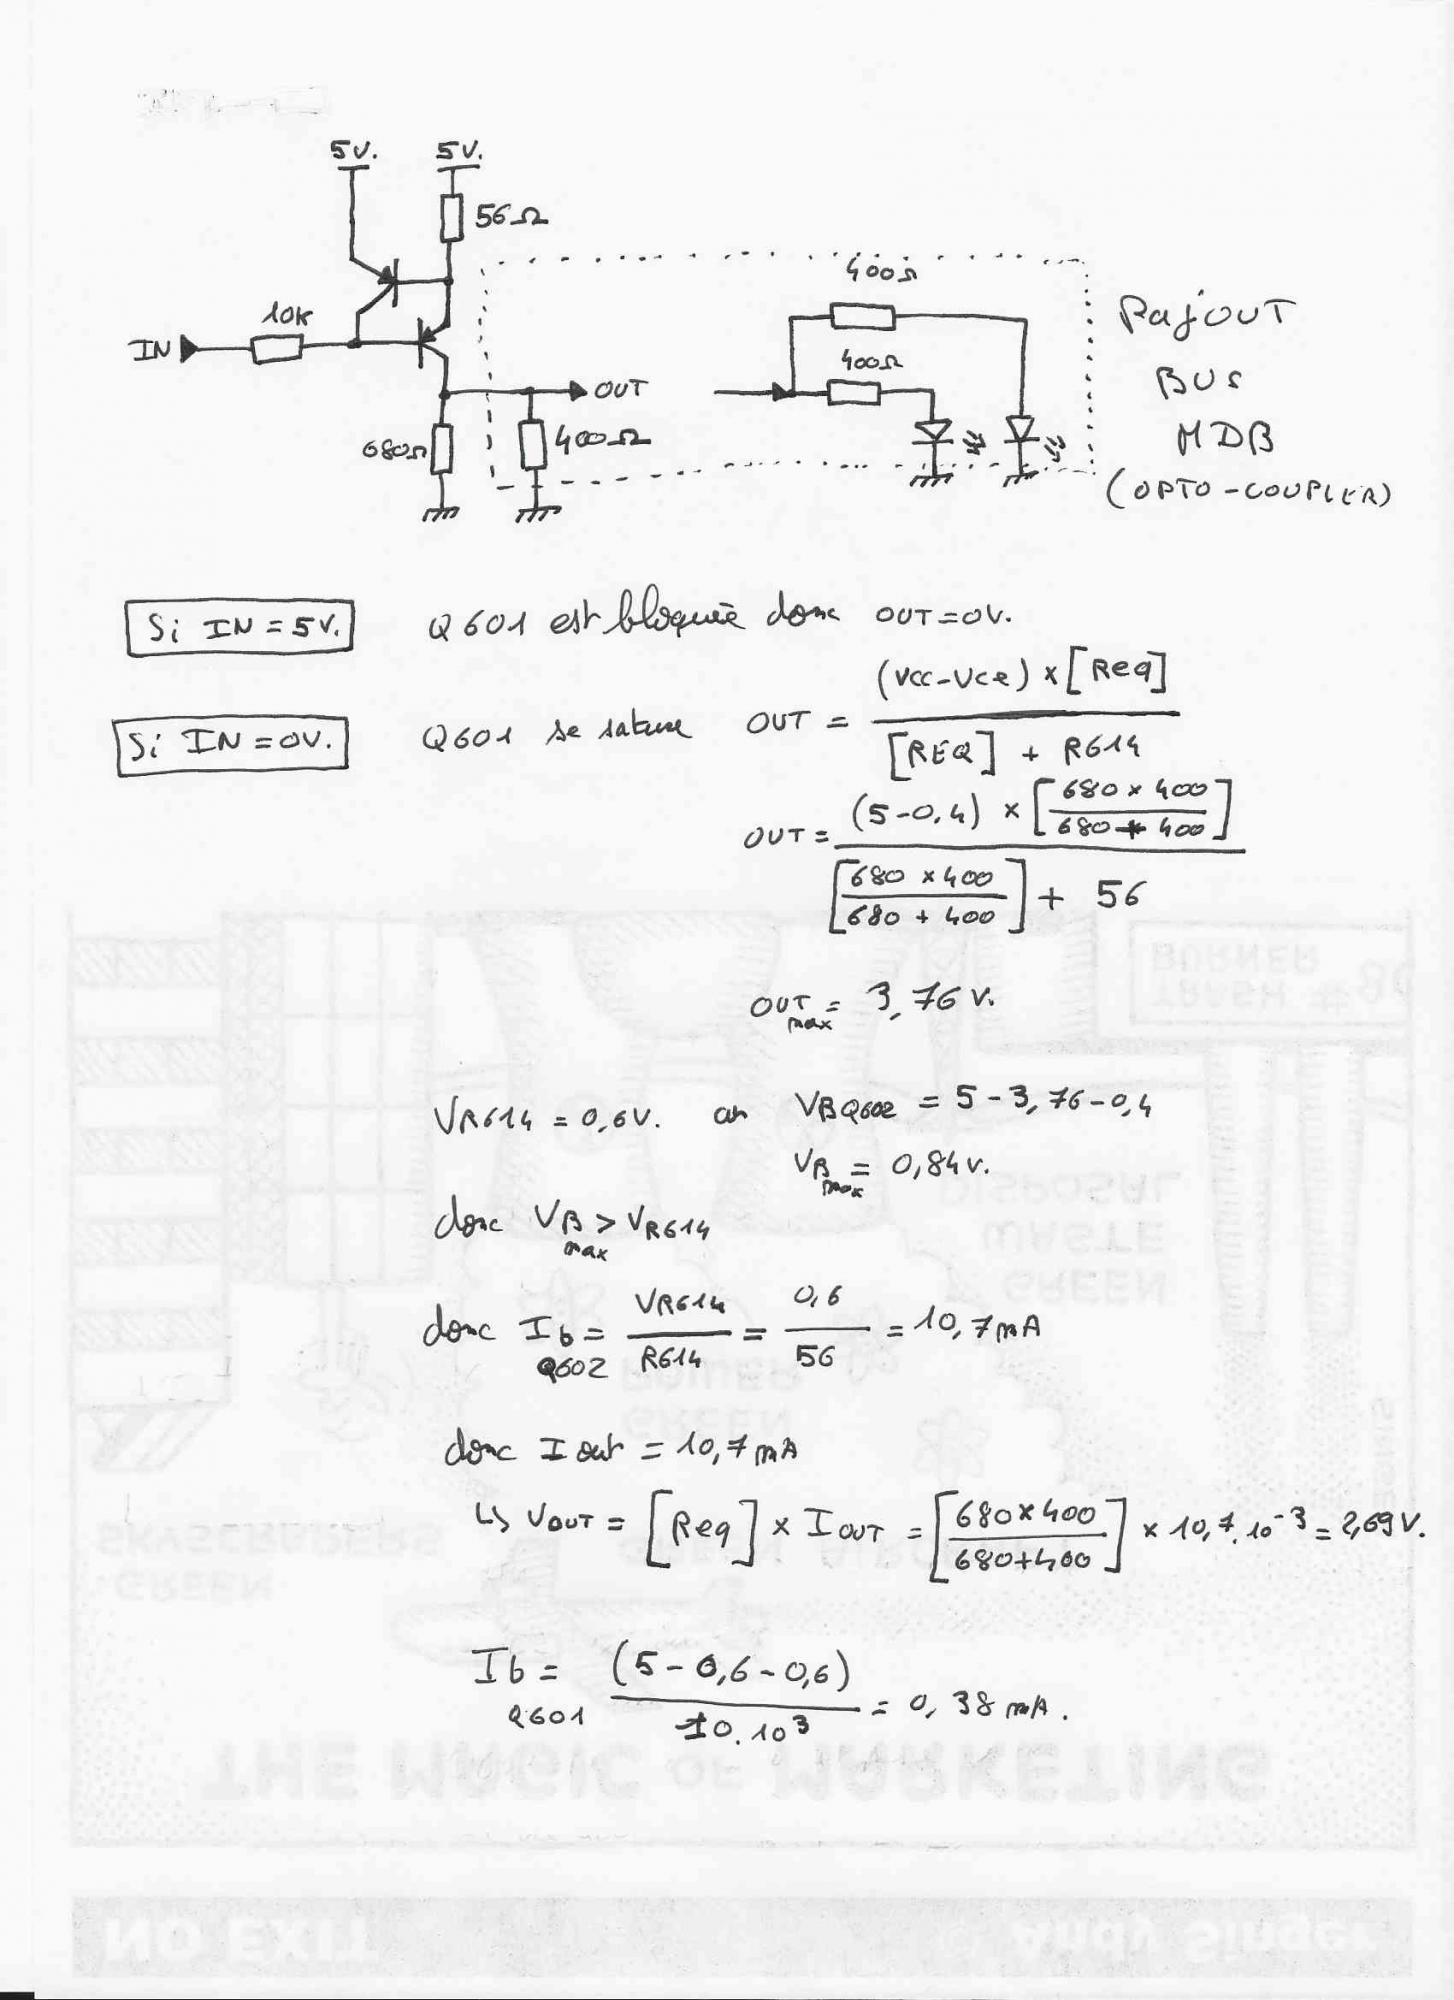 5V. 5V.
56Ω
400Ω
10K
IN
400Ω
OUT
680Ω
400Ω
RajOUT
BUS
MDB
(OPTO-COUPLER)
Si IN = 5V. Q601 est bloquée donc OUT=0V.
Si IN = 0V. Q601 se sature OUT = (Vcc-Vce) x [Req] / [REQ] + R614
OUT = (5-0,4) x [680 x 400 / 680 + 400] / [680 x 400 / 680 + 400] + 56
OUT max = 3,76 V.
VR614 = 0,6V. or VBQ602 = 5 - 3,76 - 0,4
VB max = 0,84V.
donc VB max > VR614
donc Ib Q602 = VR614 / R614 = 0,6 / 56 = 10,7 mA
donc I out = 10,7 mA
↳ VOUT = [Req] x IOUT = [680 x 400 / 680+400] x 10,7.10-3 = 2,69V.
Ib Q601 = (5 - 0,6 - 0,6) / 10.10³ = 0,38 mA.
BURNER
TRASH #
DISPOSAL
WASTE
GREEN
POWER
GREEN
SKYSCRAPERS
GREEN
THE MAGIC OF MARKETING
NO EXIT © Andy Singer